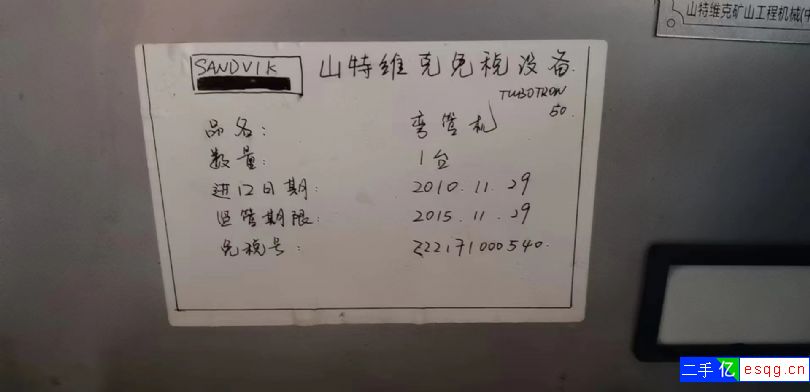 山特维克矿山工程机械(中
SANDVIK
山特维克免税设备
TUBOTRON
50
品名: 弯管机
数量: 1台
进口日期: 2010.11.29
监管期限: 2015.11.29
免税号: Z22171000540.
二手亿 esqg.cn